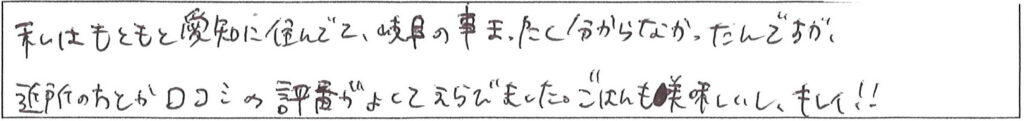 私はもともと愛知に住んでて、岐阜の事まったく分からなかったんですが、
近所のあとか口コミの評番がよくてえらびました。ごはんも美味しいし、キレイ!!